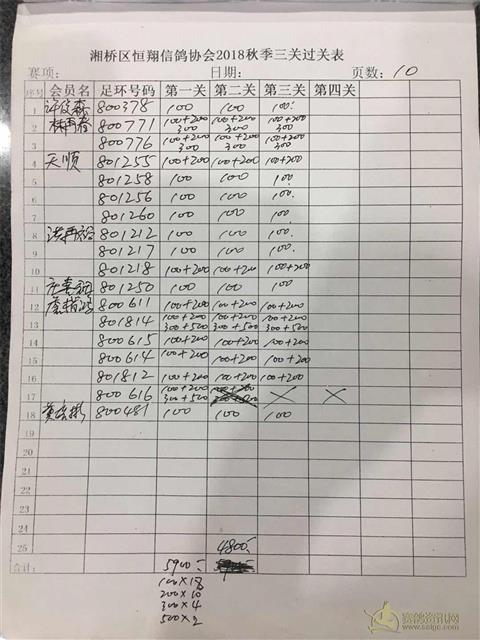 湘桥区恒翔信鸽协会2018秋季三关过关表
赛项: 日期: 页数: 10
序号 会员名 足环号码 第一关 第二关 第三关 第四关
1 800378 100 100 100
2 林再春 800771 100+200 300 100+200 300 100+200 300
3 800776 100+200 300 100+200 300 100+200 300
4 天顺 801255 100+200 100+200 100+200
5 801258 100 100 100
6 801256 100 100 100
7 801260 100 100 100
8 801212 100 100 100
9 801217 100 100 100
10 801218 100+200 100+200 100+200
11 801250 100 100 100
12 800611 100+200 100+200 100+200
13 801814 100+200 300+500 100+200 300+500 100+200 300+500
14 800615 100+200 100+200 100+200
15 800614 100+200 100+200 100+200
16 801812 100+200 100+200 100+200
17 800616 100+200 300+500
18 800481 100 100 100
19
20
21
22
23
24
25 4800
合计: 5900
100×18
200×10
300×4
500×2
赛鸽资讯网
www.saige.com